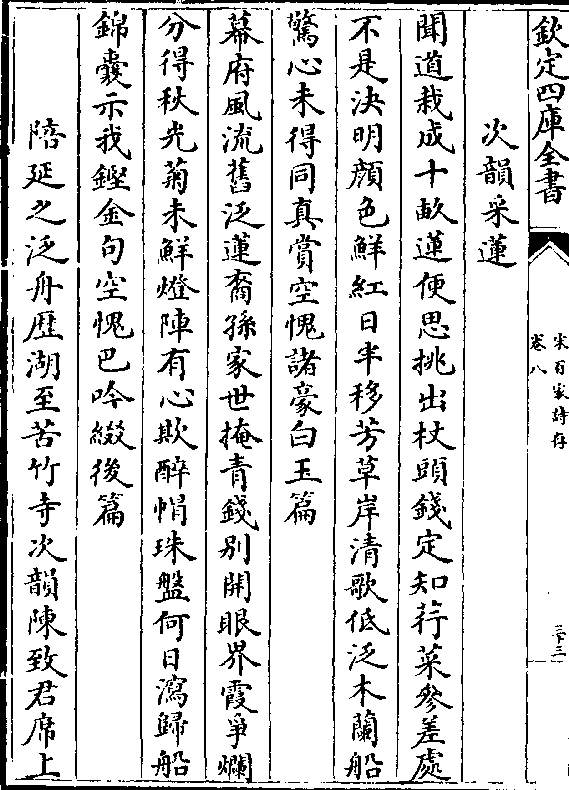 欽定四庫全書
宋百家詩存
卷八
三十三
次韻采蓮
聞道栽成十畝蓮便思挑出杖頭錢定知荇菜參差處
不是決明顔色鮮紅日半移芳草岸清歌低泛木蘭船
驚心未得同真賞空愧諸豪白玉篇
幕府風流舊泛蓮裔孫家世掩青錢别開眼界霞爭爛
分得秋光菊未鮮燈陣有心欺醉帽珠盤何日瀉歸船
錦囊示我鏗金句空愧巴吟綴後篇
陪延之泛舟歴湖至苦竹寺次韻陳致君席上